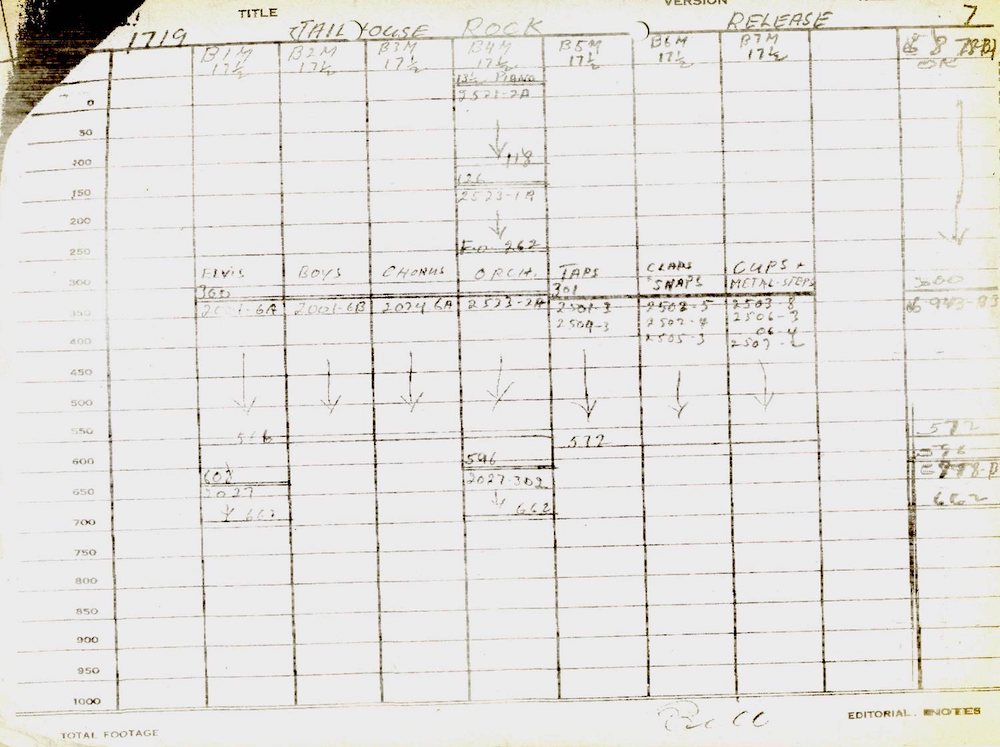 TITLE
VERSION
1719 (JAIL)HOUSE ROCK ) RELEASE 7
B1M B2M B3M B4M B5M B6M B7M
17½ 17½ 17½ 17½ 17½ 17½ 17½
OK
PIANO
0 2523-2A
50
118
126
150 2523-1A
200
250 262
ELVIS BOYS CHORUS ORCH. TAPS CLAPS SNAPS CUPS + METAL-STEPS
300 300 301 300
350 2001-6A 2001-6B 2024 6A 2523-2A 2501-3 2502-5 2503-3
2504-3 2502-4 2506-3
400 06-4
2505-3 2507-2
450
500
550 572 572
600 596
602 2027-302
650 2027 662
700 662 662
750
800
850
900
950
1000
TOTAL FOOTAGE
EDITORIAL NOTES